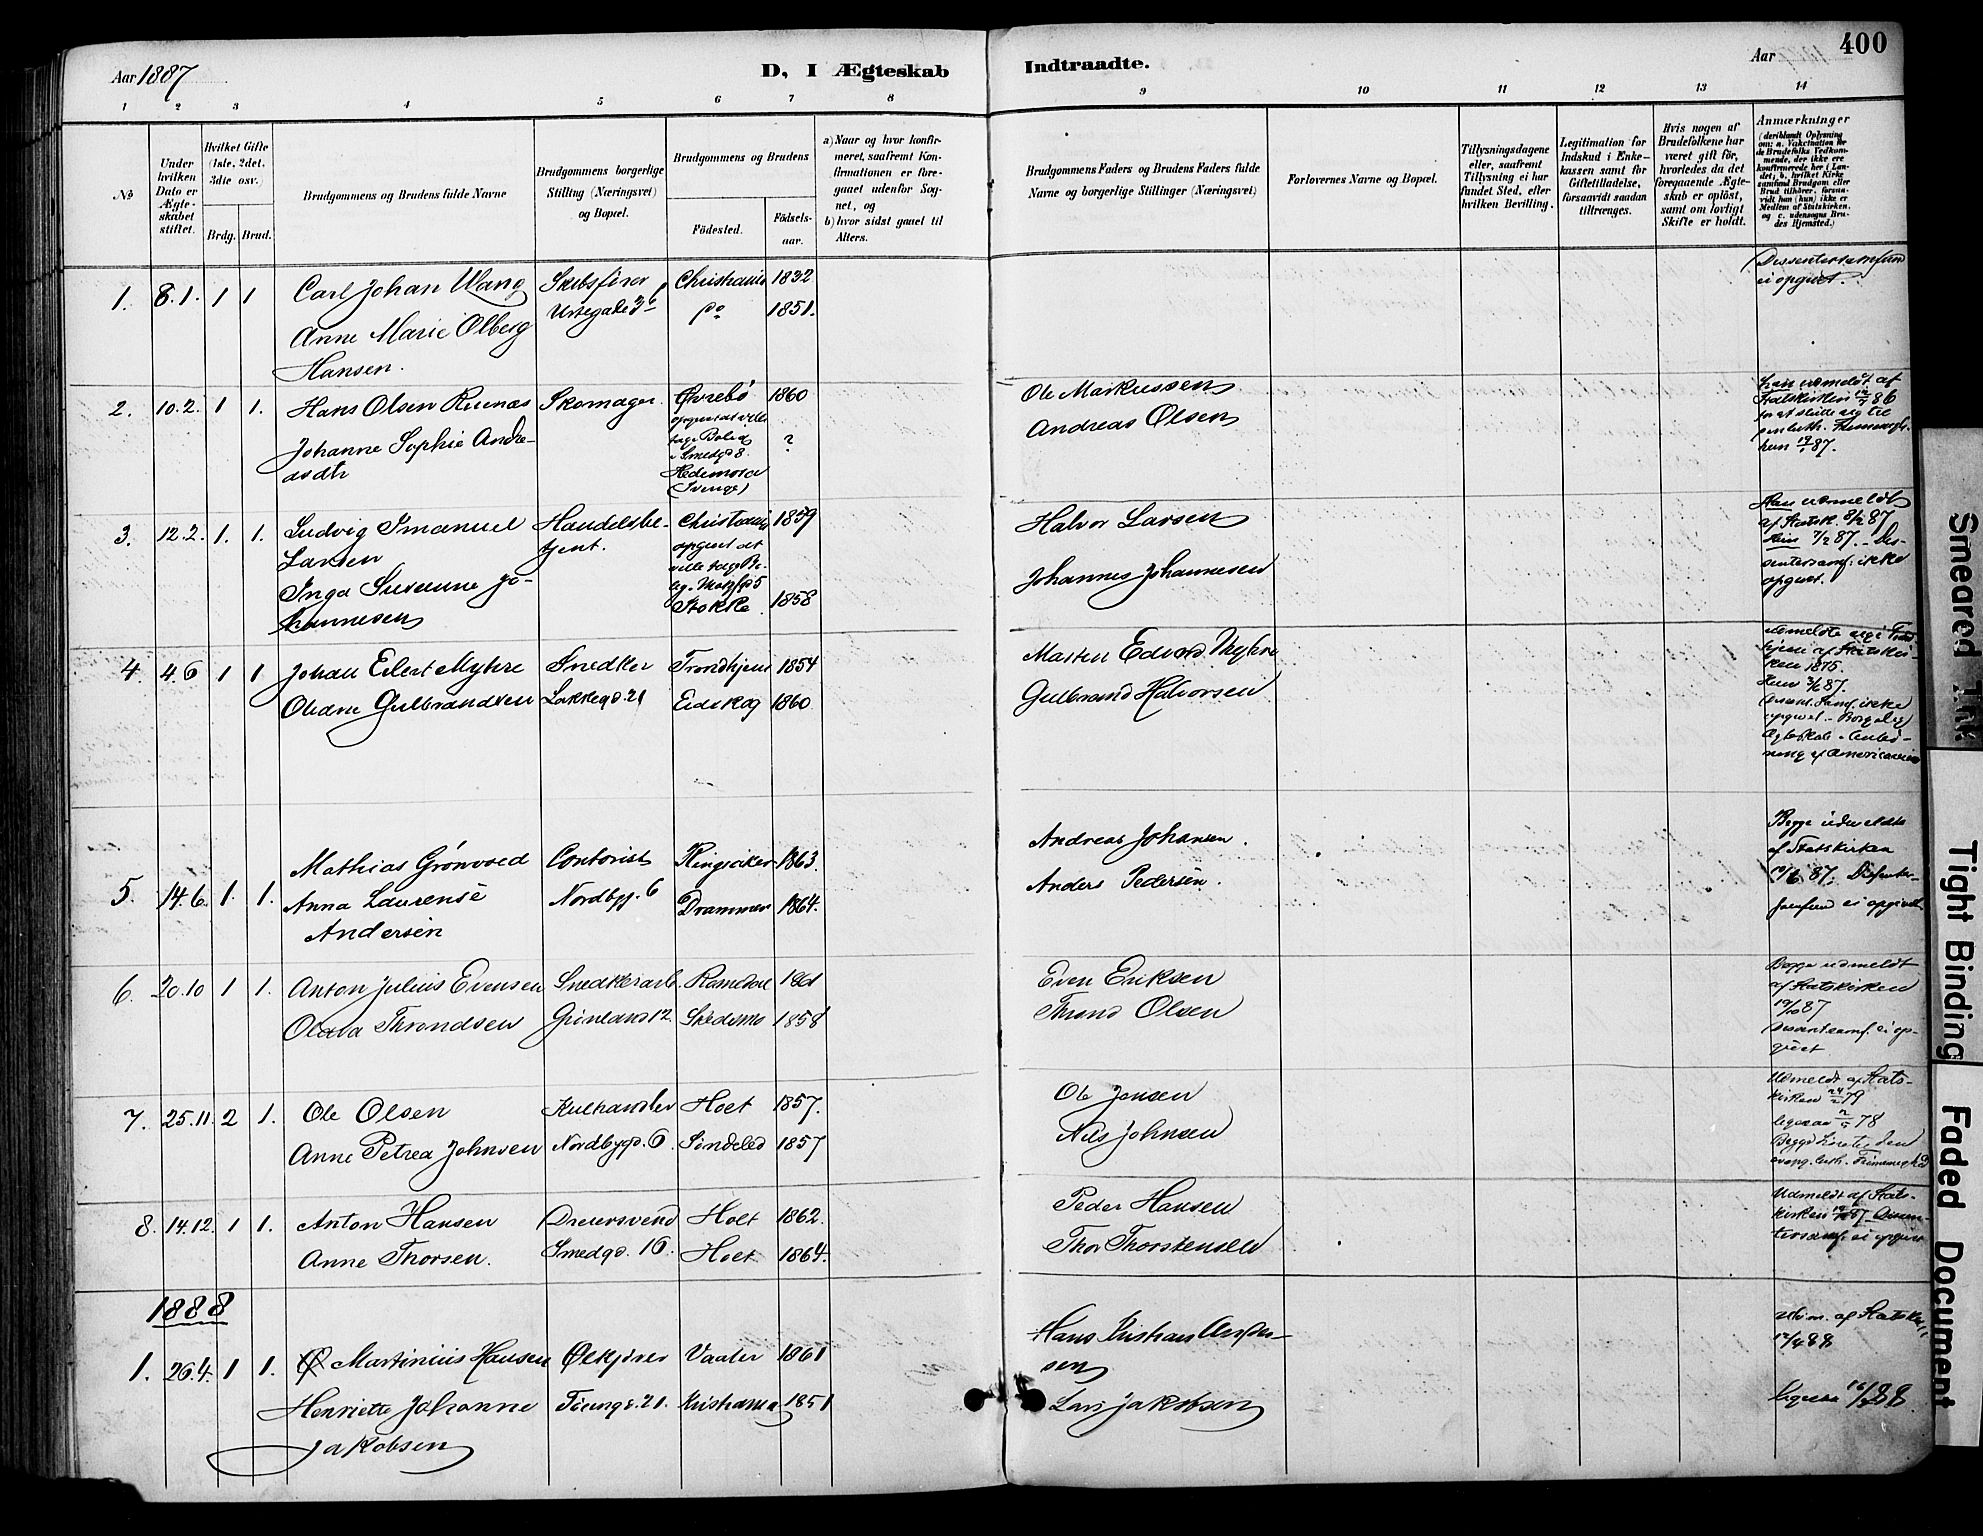 Aar 1887
D, I Ægteskab
Indtraadte.
Aar
400
1 2 3 4 5 6 7 8
9 10 11 12 13 14
№
Under hvilken Dato er Ægteskabet stiftet.
Hvilket Gifte (1ste, 2det, 3die osv.)
Brdg. Brud.
Brudgommens og Brudens fulde Navne
Brudgommens borgerlige Stilling (Næringsvei) og Bopæl.
Brudgommens og Brudens
Fødested.
Fødselsaar.
a) Naar og hvor konfirmeret, saafremt Konfirmationen er foregaaet udenfor Sognet, og
b) hvor sidst gaaet til Alters.
Brudgommens Faders og Brudens Faders fulde Navne og borgerlige Stillinger (Næringsvei)
Forlovernes Navne og Bopæl.
Tillysningsdagene eller, saafremt Tillysning ei har fundet Sted, efter hvilken Bevilling.
Legitimation for Indskud i Enkekassen samt for Giftetilladelse, forsaavidt saadan tiltrænges.
Hvis nogen af Brudefolkene har været gift før, hvorledes da det foregaaende Ægteskab er opløst, samt om lovligt Skifte er holdt.
Anmærkninger
(deriblandt Oplysning om: a. Vaccination for de Brudefolks Vedkommende, der ikke ere konfirmerede her i Landet, b. hvilket Kirkesamfund Brudgom eller Brud tilhører, forsaavidt han (hun) ikke er Medlem af Statskirken, og c. udensogns Brudes Hjemsted.)
1. 8.1. 1 1 Carl Johan Wang Skibsfører Christiania 1832
Anne Marie Olberg Urtegade do 1851.
Hansen.
Dissentersamfund
ei opgivet.
2. 10.2. 1 1. Hans Olsen Skomager. Øvrebø 1860 Ole Markussen
Johanne Sophie Andre- ? Andreas Olsen
asdtr
Smedgd 8
Hedemora
(Sverige)
han udmeldt af
Statskirken 86
hun 87.
3. 12.2. 1. 1. Ludvig Imanuel Handelsbe- Christiania 1859 Halvor Larsen
Larsen tjent. opgivet at
Inga Susanne Jo- ville tage Bo- Johannes Johannesen
hannesen Stokke 1858
Han udmeldt
af Statsk. 8/2 87
Hun 7/2 87. - Dis-
sentersamf. ikke
opgivet.
4. 4.6 1 1 Johan Eilert Myhre Snedker Trondhjem 1854 Morten Edvard Myhre
Oleane Gulbrandsen Lakkegd. 21 Eidskog 1860 Gulbrand Halvorsen
udmeldte sig i Trond-
hjem af Statskir-
ken 1875.
Hun 3/6 87.
Dissent. Samf. ikke
opgivet. - Borgerlig
Ægteskab
5. 14.6. 1. 1. Mathias Grønvold Contorist Ringsaker 1863. Andreas Johansen.
Anna Laurense Nordbygd. 6 Drammen 1864. Anders Pedersen.
Andersen
Begge udmeldte
af Statskirken
87. Dissenter-
samfund ei opgivet.
6. 20.10 1 1. Anton Julius Evensen Snedkerarb. Romedal 1861 Even Eriksen
Olava Throndsen Grønland 12. Skedsmo 1858 Thrond Olsen
Begge udmeldt
af Statskirken
19/10 87
Dissentsamf. ei op-
givet
7. 25.11. 2 1. Ole Olsen Kulhandler Holt 1857. Ole Jensen
Anne Petrea Johnsen Nordbygd. 6 Søndeled 1857 Nils Johnsen
Udmeldt af Stats-
kirken 79
ligesaa 78
evang. luth. Frimenighed
8. 14.12. 1 1. Anton Hansen Dreiersvend Holt 1862. Peder Hansen
Anne Thorsen. Smedgd. 16 Holt 1864. Thor Thorstensen
Udmeldt af Stats-
kirken 87. Dissen-
tersamf. ei opgivet
1888
1. 26.4. 1 1. Martinius Hansen Ølkjører Vaaler 1861 Hans Kristian Ander-
sen
Henriette Johanne Tøieng. 21. Kristiania 1851 Lars Jakobsen
Jakobsen
Udm. af Statskir
17/4 88
ligesaa 88.
Smeared Ink
Tight Binding
Faded Document